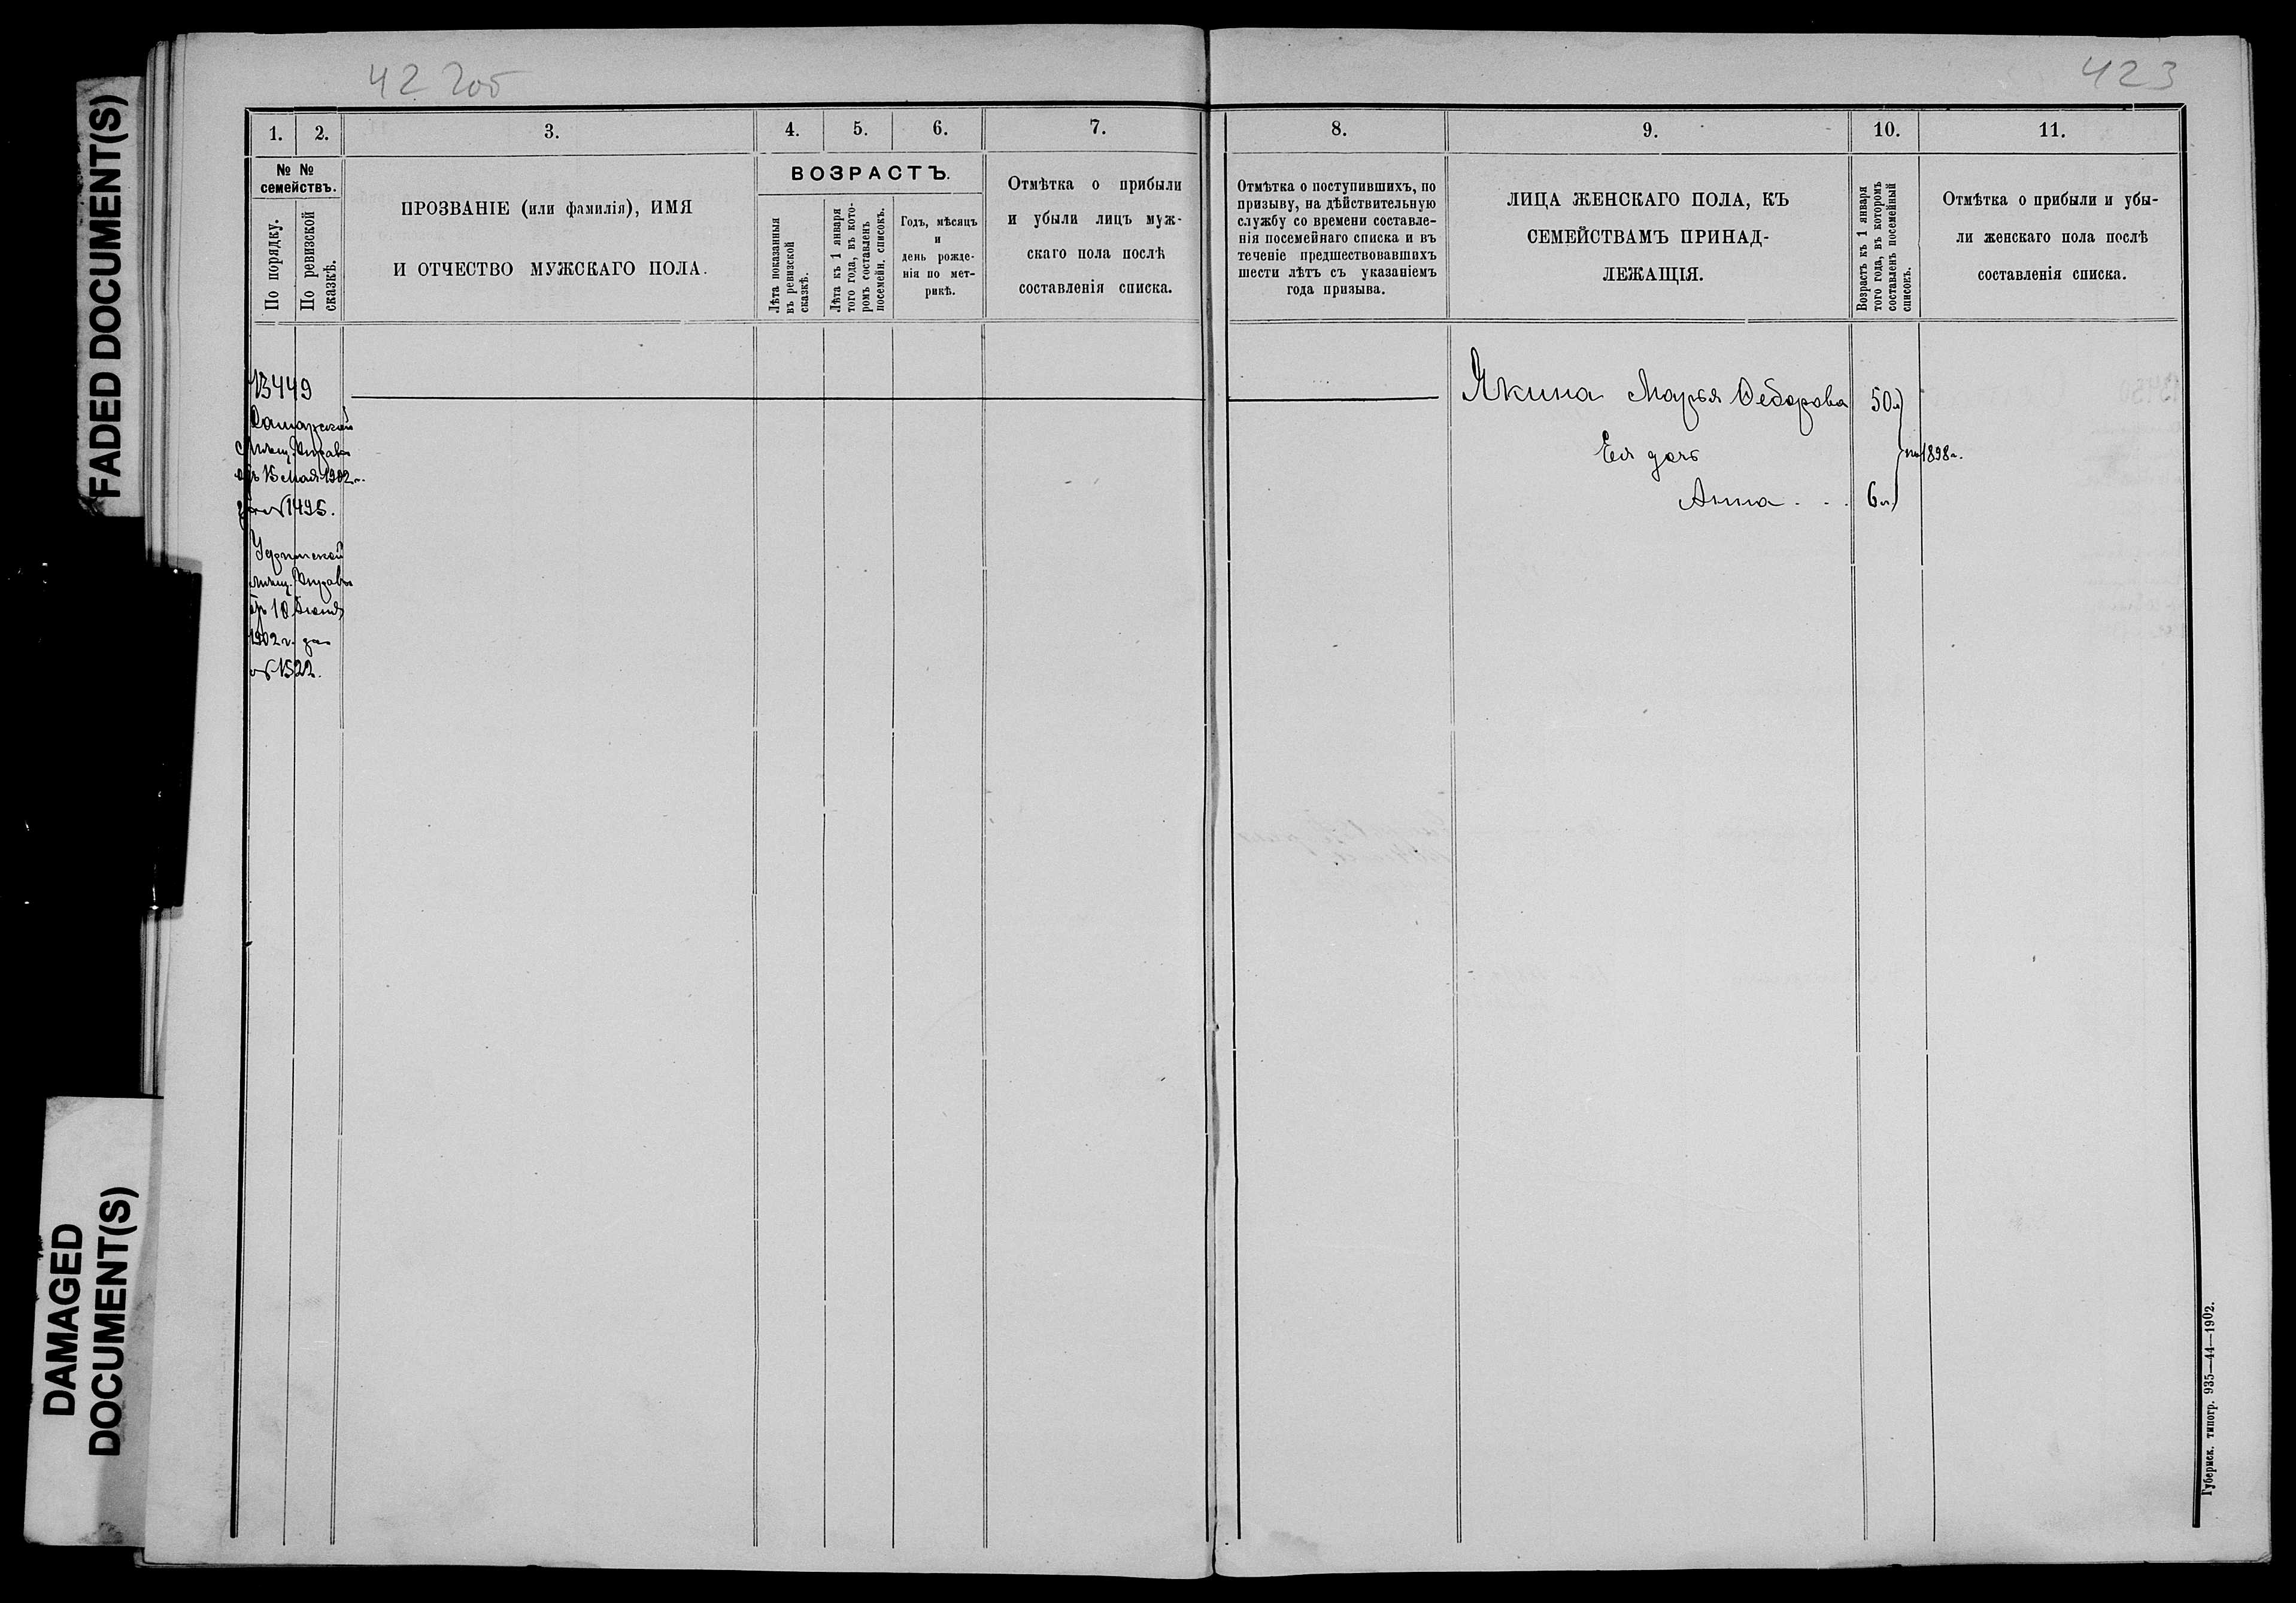 FADED DOCUMENT(S)
DAMAGED
DOCUMENT(S)
422об
423
1.
2.
3.
4.
5.
6.
7.
№ №
семействъ.
По порядку.
По ревизской
сказкѣ.
ПРОЗВАНІЕ (или фамилія), ИМЯ
И ОТЧЕСТВО МУЖСКАГО ПОЛА.
ВОЗРАСТЪ.
Лѣта показанныя
въ ревизской
сказкѣ.
Лѣта къ 1 января
того года, въ кото-
ромъ составленъ
посемейн. списокъ.
Годъ, мѣсяцъ
и
день рожде-
нія по мет-
рикѣ.
Отмѣтка о прибыли
и убыли лицъ муж-
скаго пола послѣ
составленія списка.
13449
мѣщ. Управы
15 Мая 1902 г.
№ 1495.
мѣщ. Управы
1902 г. за
№ 1522.
8.
9.
10.
11.
Отмѣтка о поступившихъ, по
призыву, на дѣйствительную
службу со времени составле-
нія посемейнаго списка и въ
теченіе предшествовавшихъ
шести лѣтъ съ указаніемъ
года призыва.
ЛИЦА ЖЕНСКАГО ПОЛА, КЪ
СЕМЕЙСТВАМЪ ПРИНАД-
ЛЕЖАЩІЯ.
Возрастъ къ 1 января
того года, въ которомъ
составленъ посемейный
списокъ.
Отмѣтка о прибыли и убы-
ли женскаго пола послѣ
составленія списка.
Якина Марья Федорова 50 л
Ея дочь
на 1898 г.
Анна . . . 6 л.
Губернск. типогр. 935—44—1902.